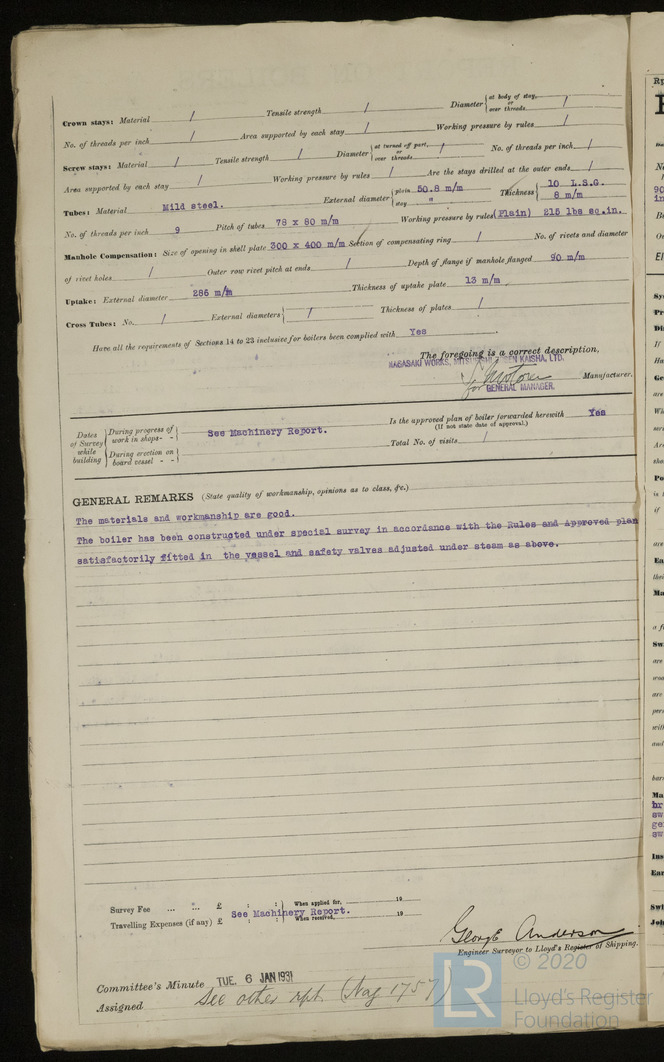 Crown stays: Material / Tensile strength / Diameter { at body of stay, or over threads /
No. of threads per inch / Area supported by each stay / Working pressure by rules /
Screw stays: Material / Tensile strength / Diameter { at turned off part, or over threads / No. of threads per inch /
Area supported by each stay / Working pressure by rules / Are the stays drilled at the outer ends /
Tubes: Material Mild steel. External diameter { plain 50.8 m/m stay " Thickness { 10 L.S.G. 8 m/m
No. of threads per inch 9 Pitch of tubes 78 x 80 m/m Working pressure by rules (Plain) 215 lbs sq.in.
Manhole Compensation: Size of opening in shell plate 300 x 400 m/m Section of compensating ring / No. of rivets and diameter
of rivet holes / Outer row rivet pitch at ends / Depth of flange if manhole flanged 90 m/m
Uptake: External diameter 286 m/m Thickness of uptake plate 13 m/m
Cross Tubes: No. / External diameters { / Thickness of plates /
Have all the requirements of Sections 14 to 23 inclusive for boilers been complied with Yes
The foregoing is a correct description,
NAGASAKI WORKS, KAISHA, LTD.
Manufacturer.
GENERAL MANAGER.
Dates of Survey while building { During progress of work in shops - - During erection on board vessel - - } See Machinery Report.
Is the approved plan of boiler forwarded herewith Yes
(If not state date of approval.)
Total No. of visits /
GENERAL REMARKS (State quality of workmanship, opinions as to class, &c.)
The materials and workmanship are good.
The boiler has been constructed under special survey in accordance with the Rules and approved plan
satisfactorily fitted in the vessel and safety valves adjusted under steam as above.
Survey Fee ... ... £ : : When applied for, 19
Travelling Expenses (if any) £ : : When received, 19
See Machinery Report.
George Anderson
Engineer Surveyor to Lloyd's Register of Shipping.
Committee's Minute TUE. 6 JAN 1931
Assigned See other rpt. (Nag 1757)
© 2020
LR
Lloyd's Register
Foundation